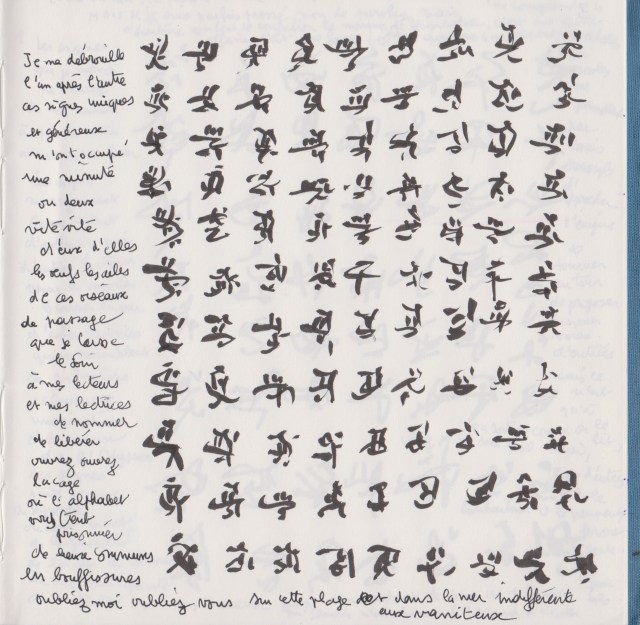 Je me débrouille
l'un après l'autre
ces signes uniques
et généreux
m'ont occupé
une minute
ou deux
vite vite
d'eux d'elles
les oeufs les ailes
de ces oiseaux
de passage
que je laisse
le soin
à mes lecteurs
et mes lectrices
de nommer
de libérer
ouvrez ouvrez
la cage
où l'alphabet
vous tient
prisonnier
de beaux
en bouffissures
oubliez moi oubliez vous sur cette plage et dans la mer indifférente
aux vaniteux